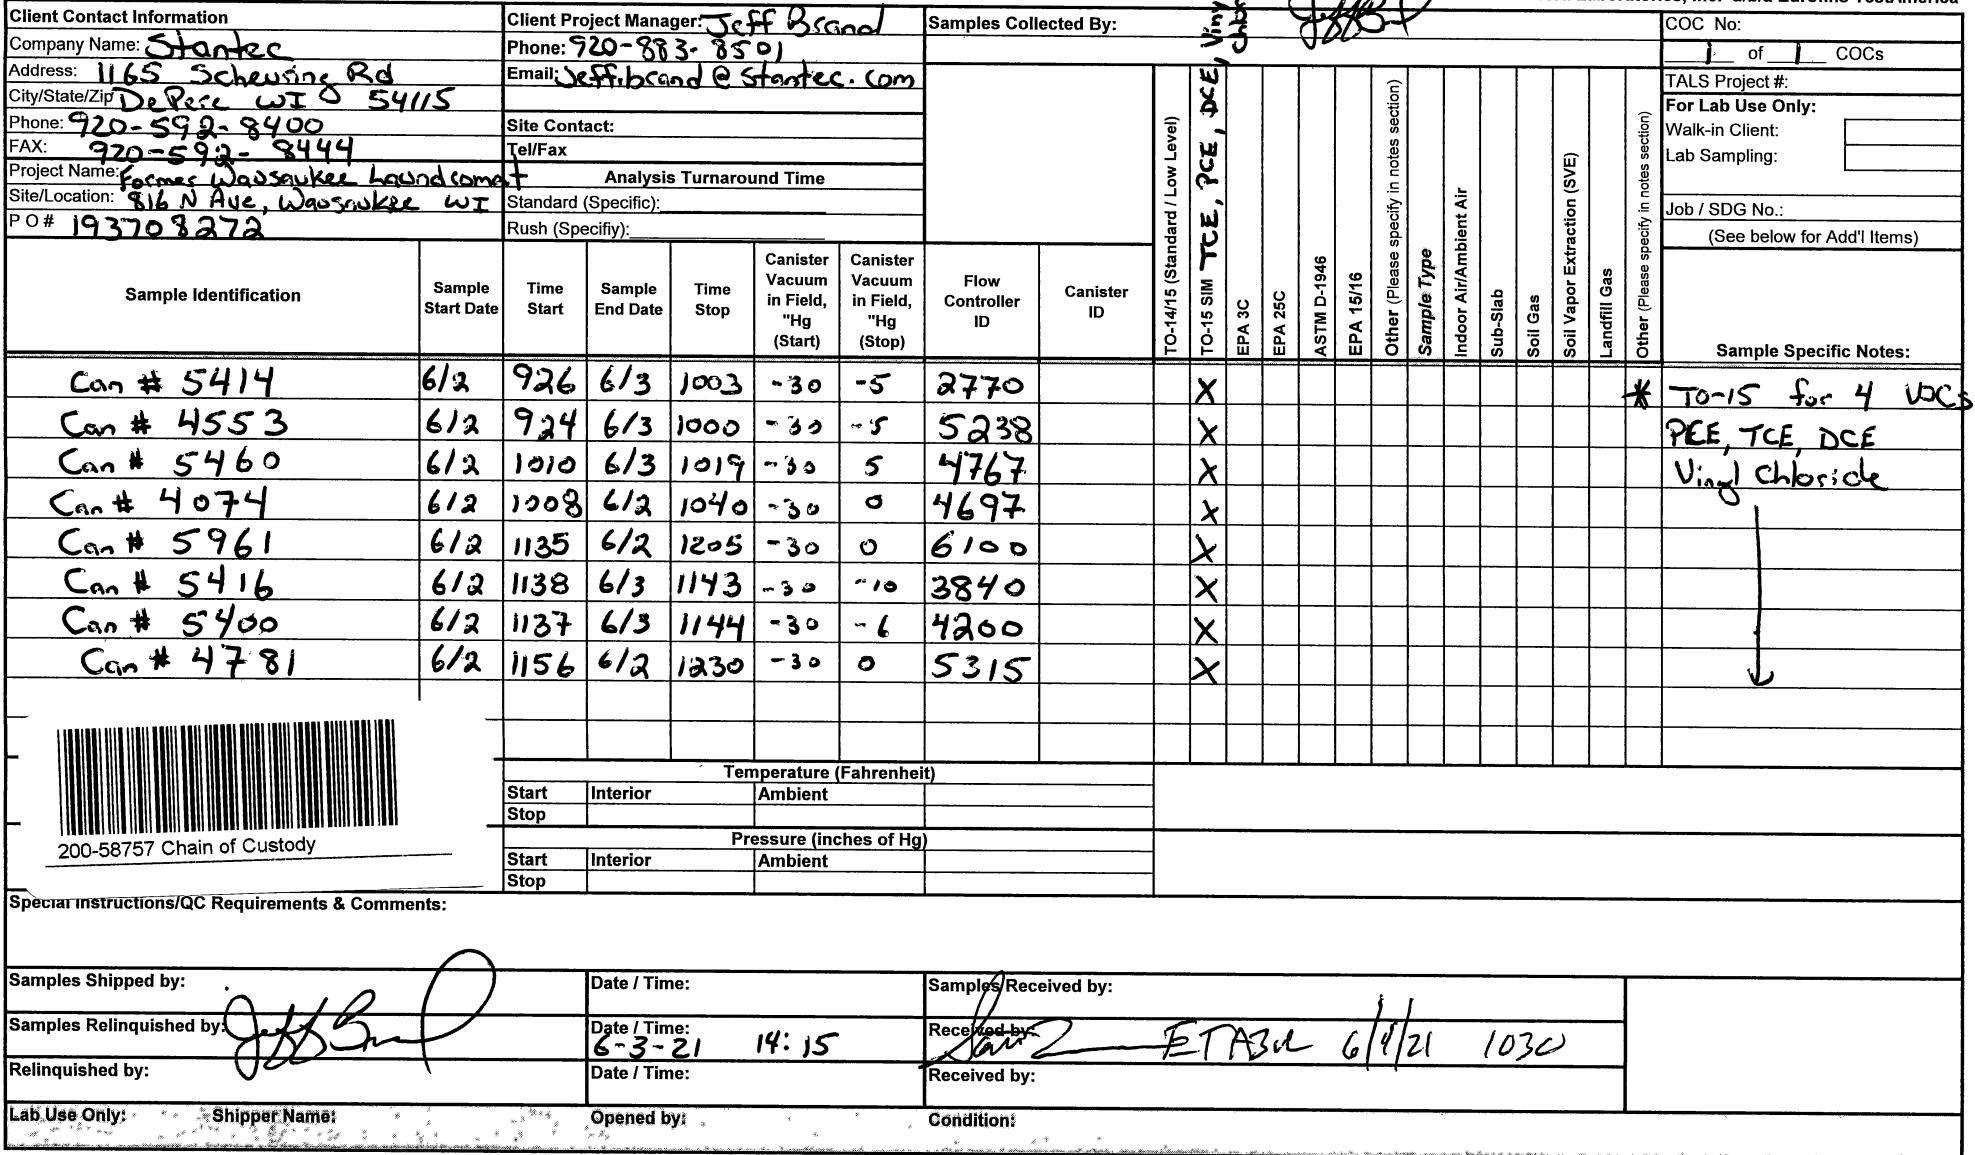 Client Contact Information
Company Name: Stantec
Address: 1165 Scheuring Rd
City/State/Zip DePere WI 54115
Phone: 920-592-8400
FAX: 920-592-8444
Project Name: Former Wausaukee Laundromat
Site/Location: 816 N Ave, Wausaukee WI
P O # 193708272
Client Project Manager: Jeff Brand
Phone: 920-883-8501
Email: Jeff.brand@stantec.com
Site Contact:
Tel/Fax
Analysis Turnaround Time
Standard (Specific):
Rush (Specifiy):
Samples Collected By:
COC No:
1 of 1 COCs
TALS Project #:
For Lab Use Only:
Walk-in Client:
Lab Sampling:
Job / SDG No.:
(See below for Add'l Items)
Sample Identification
Sample Start Date
Time Start
Sample End Date
Time Stop
Canister Vacuum in Field, "Hg (Start)
Canister Vacuum in Field, "Hg (Stop)
Flow Controller ID
Canister ID
TO-14/15 (Standard / Low Level)
TO-15 SIM TCE, PCE, DCE, Viny
EPA 3C
EPA 25C
ASTM D-1946
EPA 15/16
Other (Please specify in notes section)
Sample Type
Indoor Air/Ambient Air
Sub-Slab
Soil Gas
Soil Vapor Extraction (SVE)
Landfill Gas
Other (Please specify in notes section)
Sample Specific Notes:
Can # 5414 6/2 926 6/3 1003 -30 -5 2770 X * TO-15 for 4 VOCs
Can # 4553 6/2 924 6/3 1000 -30 -5 5238 X PCE, TCE, DCE
Can # 5460 6/2 1010 6/3 1019 -30 5 4767 X Vinyl Chloride
Can # 4074 6/2 1008 6/2 1040 -30 0 4697 X
Can # 5961 6/2 1135 6/2 1205 -30 0 6100 X
Can # 5416 6/2 1138 6/3 1143 -30 -10 3840 X
Can # 5400 6/2 1137 6/3 1144 -30 -6 4200 X
Can # 4781 6/2 1156 6/2 1230 -30 0 5315 X
200-58757 Chain of Custody
Temperature (Fahrenheit)
Start Interior Ambient
Stop
Pressure (inches of Hg)
Start Interior Ambient
Stop
Special Instructions/QC Requirements & Comments:
Samples Shipped by: Date / Time: Samples Received by:
Samples Relinquished by: Jeff Brand Date / Time: 6-3-21 14:15 Received by: 6/4/21 1030
Relinquished by: Date / Time: Received by:
Lab Use Only: Shipper Name: Opened by: Condition: